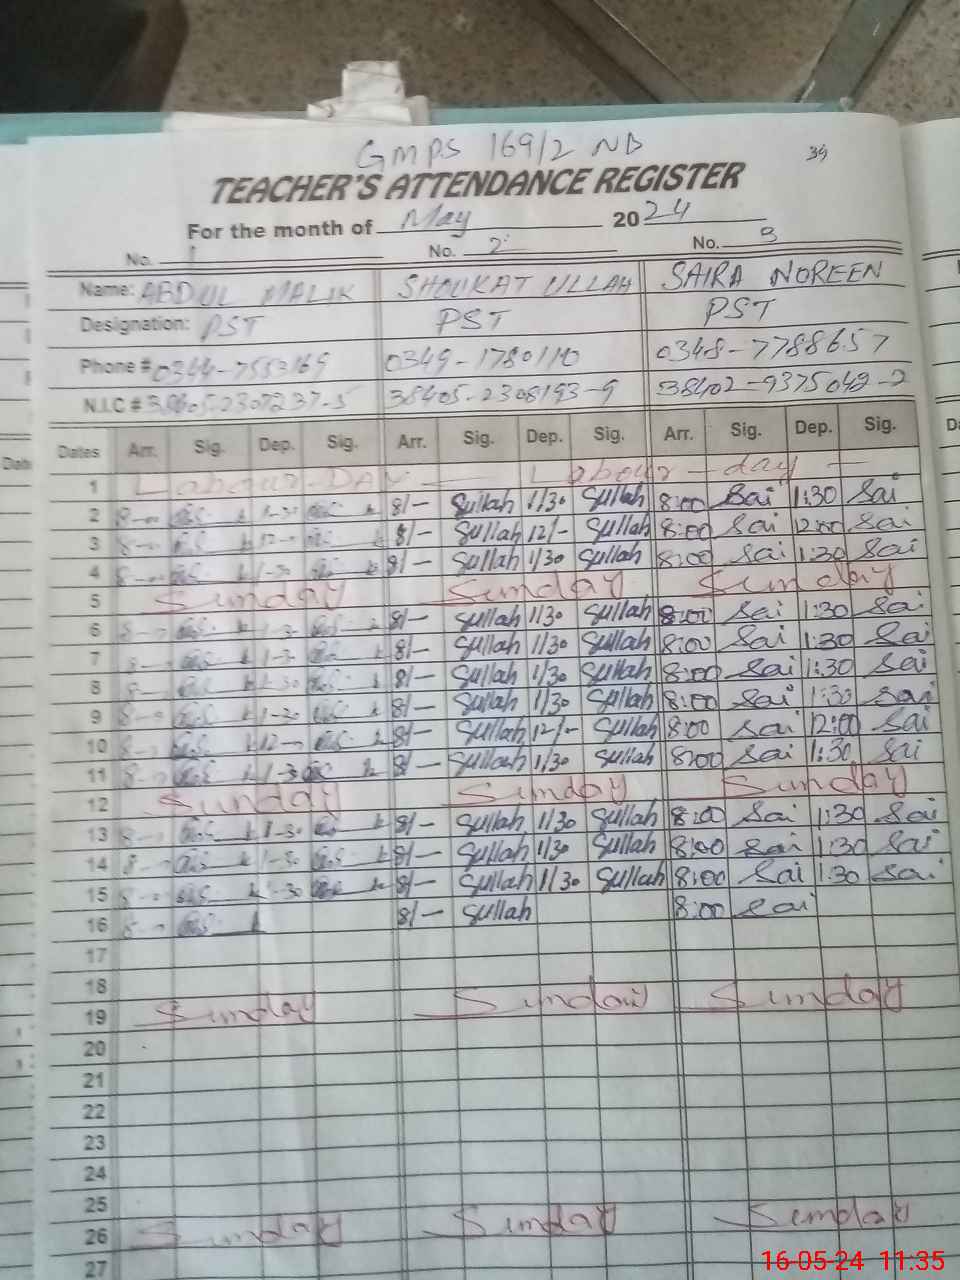 GMPS 169/2 NB 39
TEACHER'S ATTENDANCE REGISTER
For the month of May 2024
No. 1 No. 2 No. 3
Name: ABDUL MALIK SHOUKAT ULLAH SAIRA NOREEN
Designation: PST PST PST
Phone # 0349-1780110 0348-7788657
N.I.C # 38405-2308193-9 38402-9375042-2
Dates Arr. Sig. Dep. Sig. Arr. Sig. Dep. Sig. Arr. Sig. Dep. Sig.
1 Labour DAY — Labour — day —
2 8-00 1-30 8/— Sullah 1/30 Sullah 8:00 Sai 1:30 Sai
3 8-00 12-00 8/— Sullah 12/- Sullah 8:00 Sai 12:00 Sai
4 8-00 1-30 8/— Sullah 1/30 Sullah 8:00 Sai 1:30 Sai
5 Sunday Sunday Sunday
6 8-00 1-30 8/— Sullah 1/30 Sullah 8:00 Sai 1:30 Sai
7 8-00 1-30 8/— Sullah 1/30 Sullah 8:00 Sai 1:30 Sai
8 8-00 1-30 8/— Sullah 1/30 Sullah 8:00 Sai 1:30 Sai
9 8-00 1-30 8/— Sullah 1/30 Sullah 8:00 Sai 1:30 Sai
10 8-00 12-00 8/— Sullah 12/- Sullah 8:00 Sai 12:00 Sai
11 8-00 1-30 8/— Sullah 1/30 Sullah 8:00 Sai 1:30 Sai
12 Sunday Sunday Sunday
13 8-00 1-30 8/— Sullah 1/30 Sullah 8:00 Sai 1:30 Sai
14 8-00 1-30 8/— Sullah 1/30 Sullah 8:00 Sai 1:30 Sai
15 8-00 1-30 8/— Sullah 1/30 Sullah 8:00 Sai 1:30 Sai
16 8-00 8/— Sullah 8:00 Sai
17
18
19 Sunday Sunday Sunday
20
21
22
23
24
25
26 Sunday Sunday Sunday
27
16-05-24 11:35